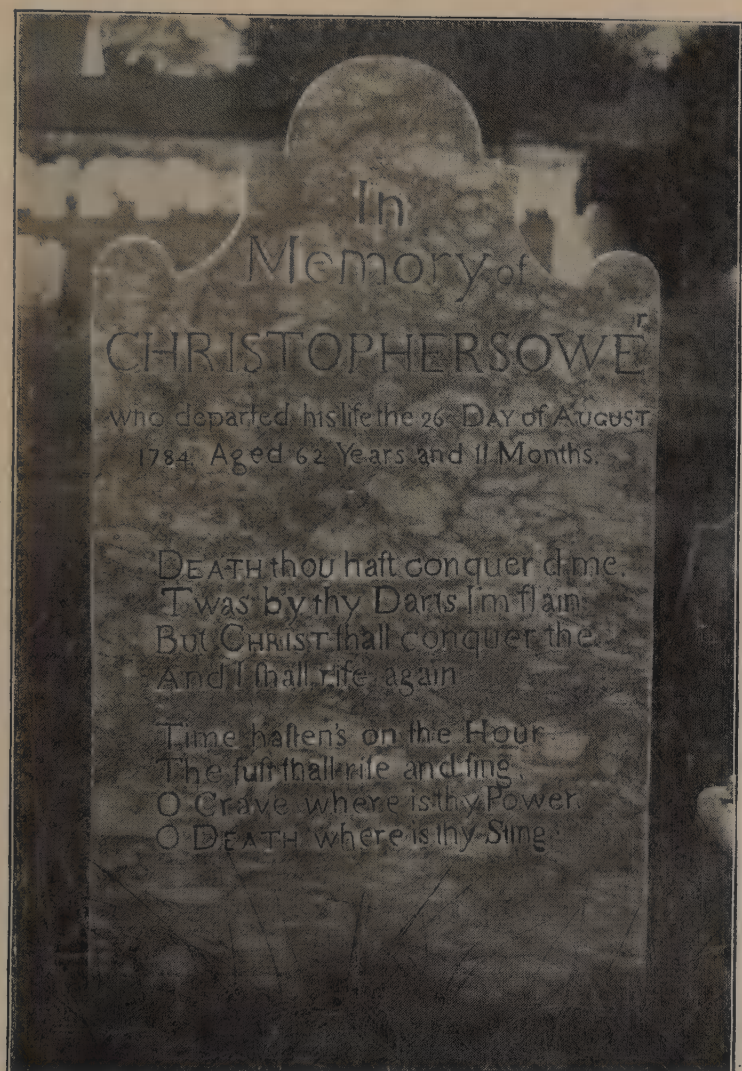 In
Memory of
CHRISTOPHER SOWEr
who departed his life the 26 DAY of AUGUST
1784. Aged 62 Years and 11 Months.
DEATH thou haſt conquer'd me,
Twas by thy Darts I'm ſlain;
But CHRIST ſhall conquer the
And I ſhall riſe again
Time haſten's on the Hour
The juſt ſhall riſe and ſing,
O Grave where is thy Power
O DEATH where is thy Sting